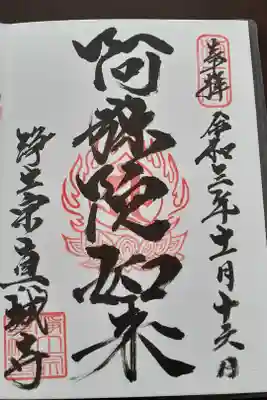 奉拝
令和三年十一月十六日
阿弥陀如来
浄土宗直城寺